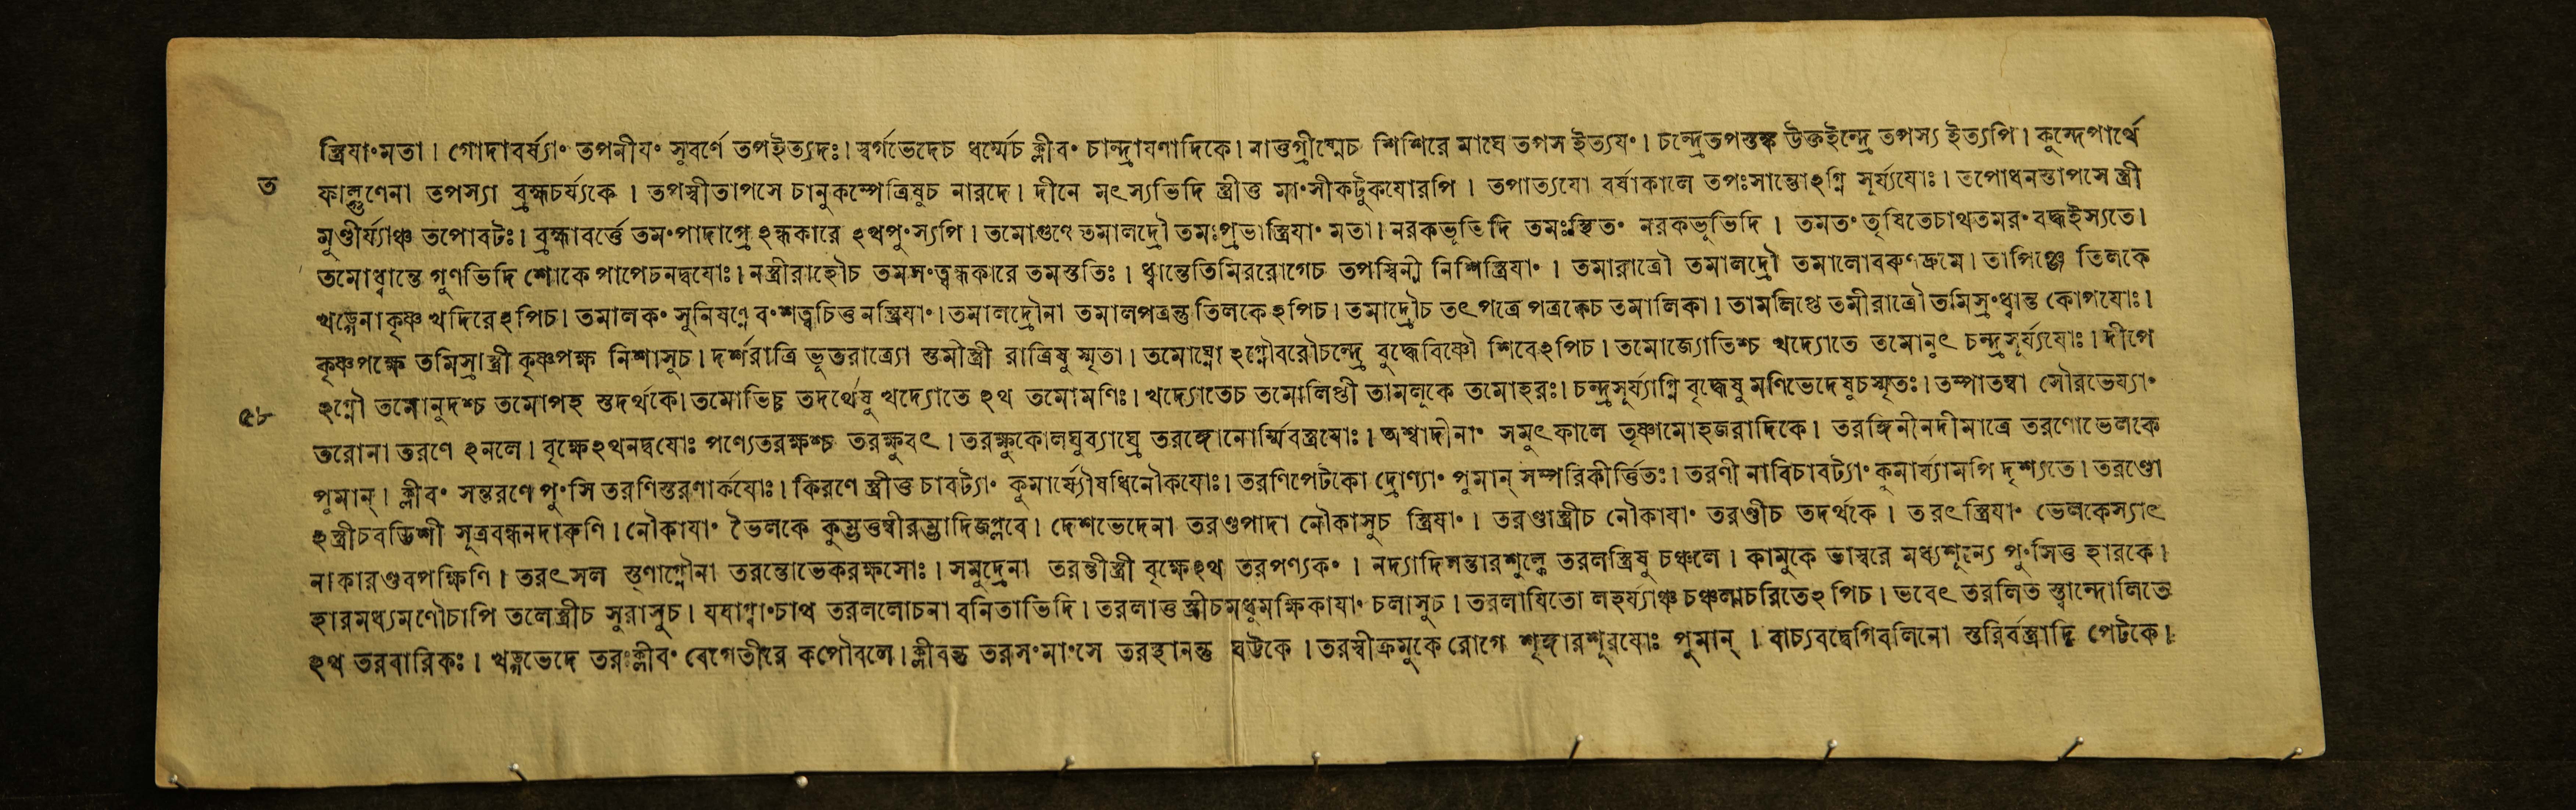 স্ত্রিযাংমতা। গোদাবর্য্যাং তপনীযং সুবর্ণে তপইত্যদঃ। স্বর্গভেদেচ ধর্ম্মেচ ক্লীবং চান্দ্রাযণাদিকে। নাত্তগ্রীষ্মেচ শিশিরে মাঘে তপস ইত্যযং। চন্দ্রেতপস্তঙ্ক উক্তইন্দ্রে তপস্য ইত্যপি। কুন্দেপার্থে
ত
ফাল্গুণেনা তপস্যা ব্রহ্মচর্য্যকে। তপস্বীতাপসে চানুকম্পেত্রিষুচ নারদে। দীনে মৎস্যভিদি স্ত্রীত্ত মাংসীকটুকযোরপি। তপাত্যযো বর্ষাকালে তপঃসান্তোঽগ্নি সূর্য্যযোঃ। তপোধনস্তাপসে স্ত্রী
মুণ্ডীর্য্যাঞ্চ তপোবটঃ। ব্রহ্মাবর্ত্তে তমংপাদাগ্রে ঽন্ধকারে ঽথপুংস্যপি। তমোগুণে তমালদ্রৌ তমঃপ্রভাস্ত্রিযাং মতা। নরকভূভিদি তমঃস্থিতং নরকভূভিদি। তমতং তৃষিতেচাথতমরং বদ্ধইস্যতে।
তমোধ্বান্তে গুণভিদি শোকে পাপেচনদ্বযোঃ। নস্ত্রীরাহৌচ তমসংত্বন্ধকারে তমস্ততিঃ। ধ্বান্তেতিমিররোগেচ তপস্বিনী নিশিস্ত্রিযাং। তমারাত্রৌ তমালদ্রৌ তমালোবরুণদ্রুমে। তাপিঞ্জে তিলকে
খড়্গেনাকৃষ্ণ খদিরেঽপিচ। তমালকং সুনিষণ্ণে বংশত্বচিত্ত নস্ত্রিযাং। তমালদ্রৌনা তমালপত্রন্তু তিলকেঽপিচ। তমাদ্রৌচ তৎপত্রে পত্রকেচ তমালিকা। তামলিপ্তে তমীরাত্রৌ তমিস্রংধ্বান্ত কোপযোঃ।
কৃষ্ণপক্ষে তমিস্রাস্ত্রী কৃষ্ণপক্ষ নিশাসুচ। দর্শরাত্রি ভূত্তরাত্র্যো স্তমীস্ত্রী রাত্রিষু স্মৃতা। তমোঘ্নো ঽগ্নৌবরৌচন্দ্রে বুদ্ধেবিষ্ণৌ শিবেঽপিচ। তমোজ্যোতিশ্চ খদ্যোতে তমোনুৎ চন্দ্রসূর্য্যযোঃ। দীপে
৫৮
ঽগ্নৌ তমোনুদশ্চ তমোপহ স্তদর্থকে। তমোভিচ্চ তদর্থেষু খদ্যোতে ঽথ তমোমণিঃ। খদ্যোতেচ তমোলিপ্তী তামলূকে তমোহরঃ। চন্দ্রসূর্য্যাগ্নি বৃদ্ধেষু মণিভেদেষুচস্মৃতঃ। তম্পাতম্বা সৌরভেয্যাং
তরোনা তরণে ঽনলে। বৃক্ষেঽথনদ্বযোঃ পণ্যেতরক্ষশ্চ তরক্ষুবৎ। তরক্ষুকোলঘুব্যাঘ্রে তরঙ্গোনোর্ম্মিবস্ত্রযোঃ। অশ্বাদীনাং সমুৎফালে তৃষ্ণামোহজরাদিকে। তরঙ্গিনীনদীমাত্রে তরণোভেলকে
পুমান্। ক্লীবং সন্তরণে পুংসি তরণিস্তরণার্কযোঃ। কিরণে স্ত্রীত্ত চাবট্যাং কুমার্য্যৌষধিনৌকযোঃ। তরণিপেটকো দ্রোণ্যাং পুমান্ সম্পরিকীর্ত্তিতঃ। তরণী নাবিচাবট্যাং কুমার্য্যামপি দৃশ্যতে। তরণ্ডো
ঽস্ত্রীচবড়িশী সূত্রবন্ধনদারুণি। নৌকাযাং ভৈলকে কুম্ভত্তম্বীরম্ভাদিজপ্লবে। দেশভেদেনা তরণ্ডপাদা নৌকাসুচ স্ত্রিযাং। তরণ্ডাস্ত্রীচ নৌকাযাং তরণ্ডীচ তদর্থকে। তরৎস্ত্রিযাং ভেলকেস্যাৎ
নাকারণ্ডবপক্ষিণি। তরৎসল স্তৃণাগ্নৌনা তরন্তোভেকরক্ষসোঃ। সমুদ্রেনা তরন্তীস্ত্রী বৃক্ষেঽথ তরপণ্যকং। নদ্যাদিসন্তারশুল্কে তরলস্ত্রিষু চঞ্চলে। কামুকে ভাস্বরে মধ্যশূন্যে পুংসিত্ত হারকে।
হারমধ্যমণৌচাপি তলেস্ত্রীচ সুরাসুচ। যযাগ্বাংচাথ তরললোচনা বনিতাভিদি। তরলাত্ত স্ত্রীচমধুমক্ষিকাযাং চলাসুচ। তরলাযিতো লহর্য্যাঞ্চ চঞ্চলাচরিতেঽপিচ। ভবেৎ তরলিত স্ত্বান্দোলিতে
ঽথ তরবারিকঃ। খড়্গভেদে তরঃক্লীবং বেগেতীরে কপৌবলে। ক্লীবন্ত তরসংমাংসে তরস্থানন্তু ঘট্টকে। তরস্বীক্রমুকে রোগে শৃঙ্গারশূরযোঃ পুমান্। বাচ্যবদ্বেগিবলিনো স্তরির্বস্ত্রাদি পেটকে।